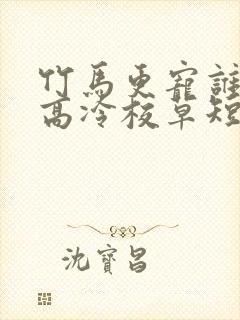 竹馬更寵誰
高冷校草短
沈寶昌